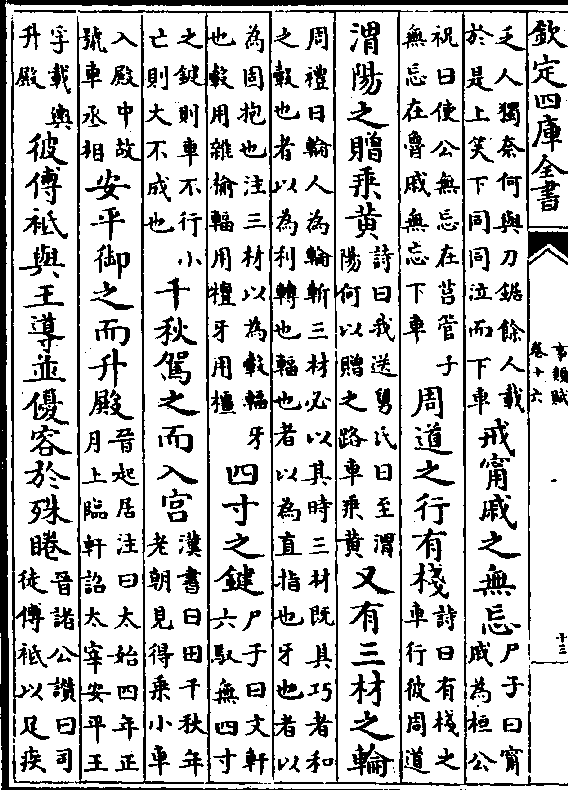 欽定四庫全書
事類賦
卷十六
十三
乏人獨奈何與刀鋸餘人載
於是上笑下同同泣而下車
戒甯戚之無忘
尸子曰甯
戚為桓公
祝曰使公無忘在莒管子
無忘在魯戚無忘下車
周道之行有棧
詩曰有棧之
車行彼周道
渭陽之贈乘黄
詩曰我送舅氏曰至渭
陽何以贈之路車乘黄
又有三材之輪
周禮曰輪人為輪斬三材必以其時三材既具巧者和
之轂也者以為利轉也輻也者以為直指也牙也者以
為固抱也注三材以為轂輻牙
也轂用雜榆輻用檀牙用橿
四寸之鍵
尸子曰文軒
六馭無四寸
之鍵則車不行小
亡則大不成也
千秋駕之而入宫
漢書曰田千秋年
老朝見得乘小車
入殿中故
號車丞相
安平御之而升殿
晉起居注曰太始四年正
月上臨軒詔太宰安平王
孚載輿
升殿
彼傅祗與王導並優容於殊睠
晉諸公讚曰司
徒傅祗以足疾